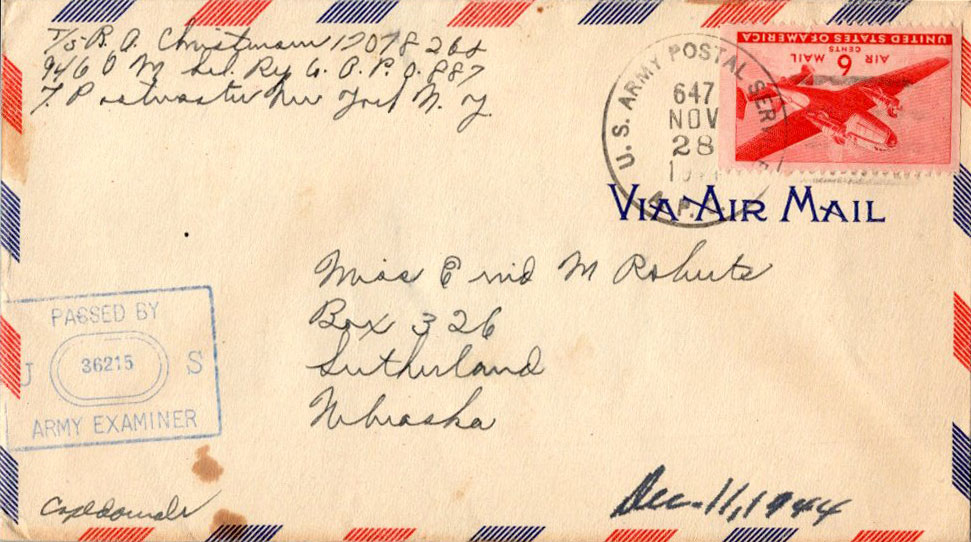 T/5 R. A. Christmann 17078268
946 O M Sec. Rg Co. A. P. O. 887
% Postmaster New York N. Y.
U. S. ARMY POSTAL SER
647
NOV
28
A. P.
UNITED STATES OF AMERICA
CENTS
6
AIR MAIL
VIA AIR MAIL
Miss Enid M Roberts
Box 326
Sutherland
Nebraska
PASSED BY
U 36215 S
ARMY EXAMINER
Dec. 11, 1944